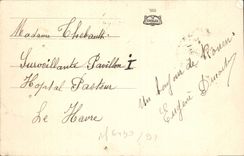 Madame Thebault
Surveillante Pavillon I
Hopital Pasteur
Le Havre
Un bonjour de Rouen
Eugène